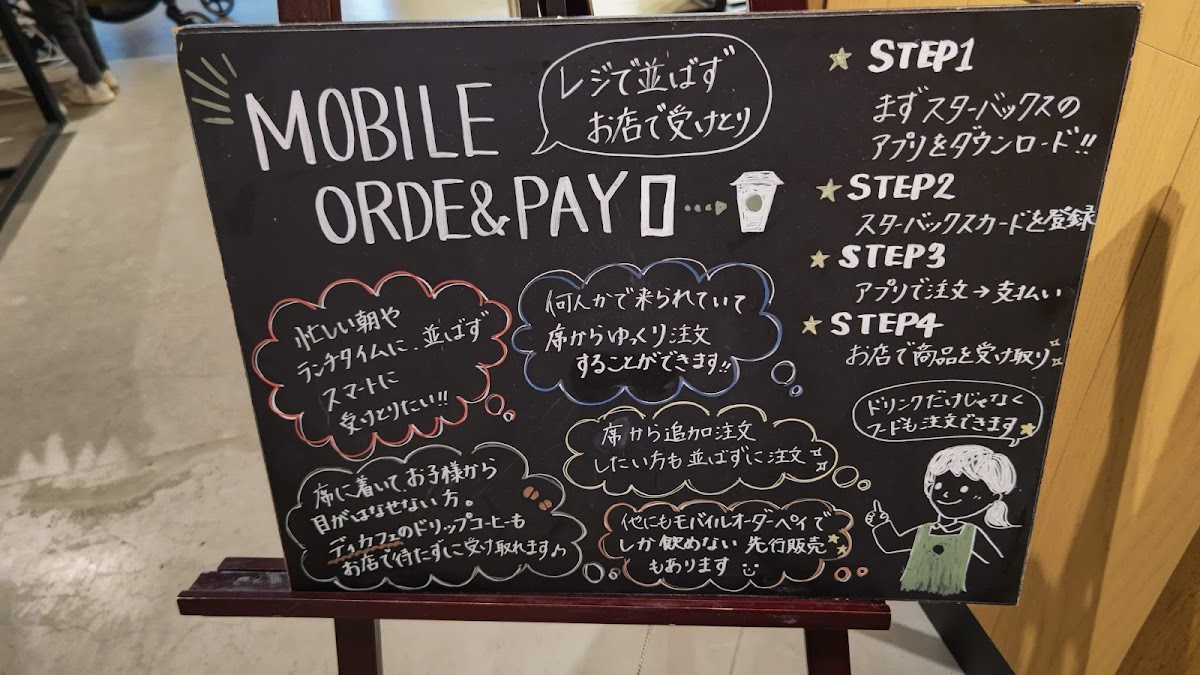 MOBILE
ORDE&PAY
レジで並ばず
お店で受けとり
★ STEP1
まずスターバックスの
アプリをダウンロード!!
★ STEP2
スターバックスカードを登録
★ STEP3
アプリで注文→支払い
★ STEP4
お店で商品を受け取り
忙しい朝や
ランチタイムに、並ばず
スマートに
受けとりたい!!
何人かで来られていて
席からゆっくり注文
することができます!!
席から追加注文
したい方も並ばずに注文
席に着いてお子様から
目がはなせない方。
ディカフェのドリップコーヒーも
お店で待たずに受け取れます♪
他にもモバイルオーダーペイで
しか飲めない 先行販売
もあります
ドリンクだけじゃなく
フードも注文できます★